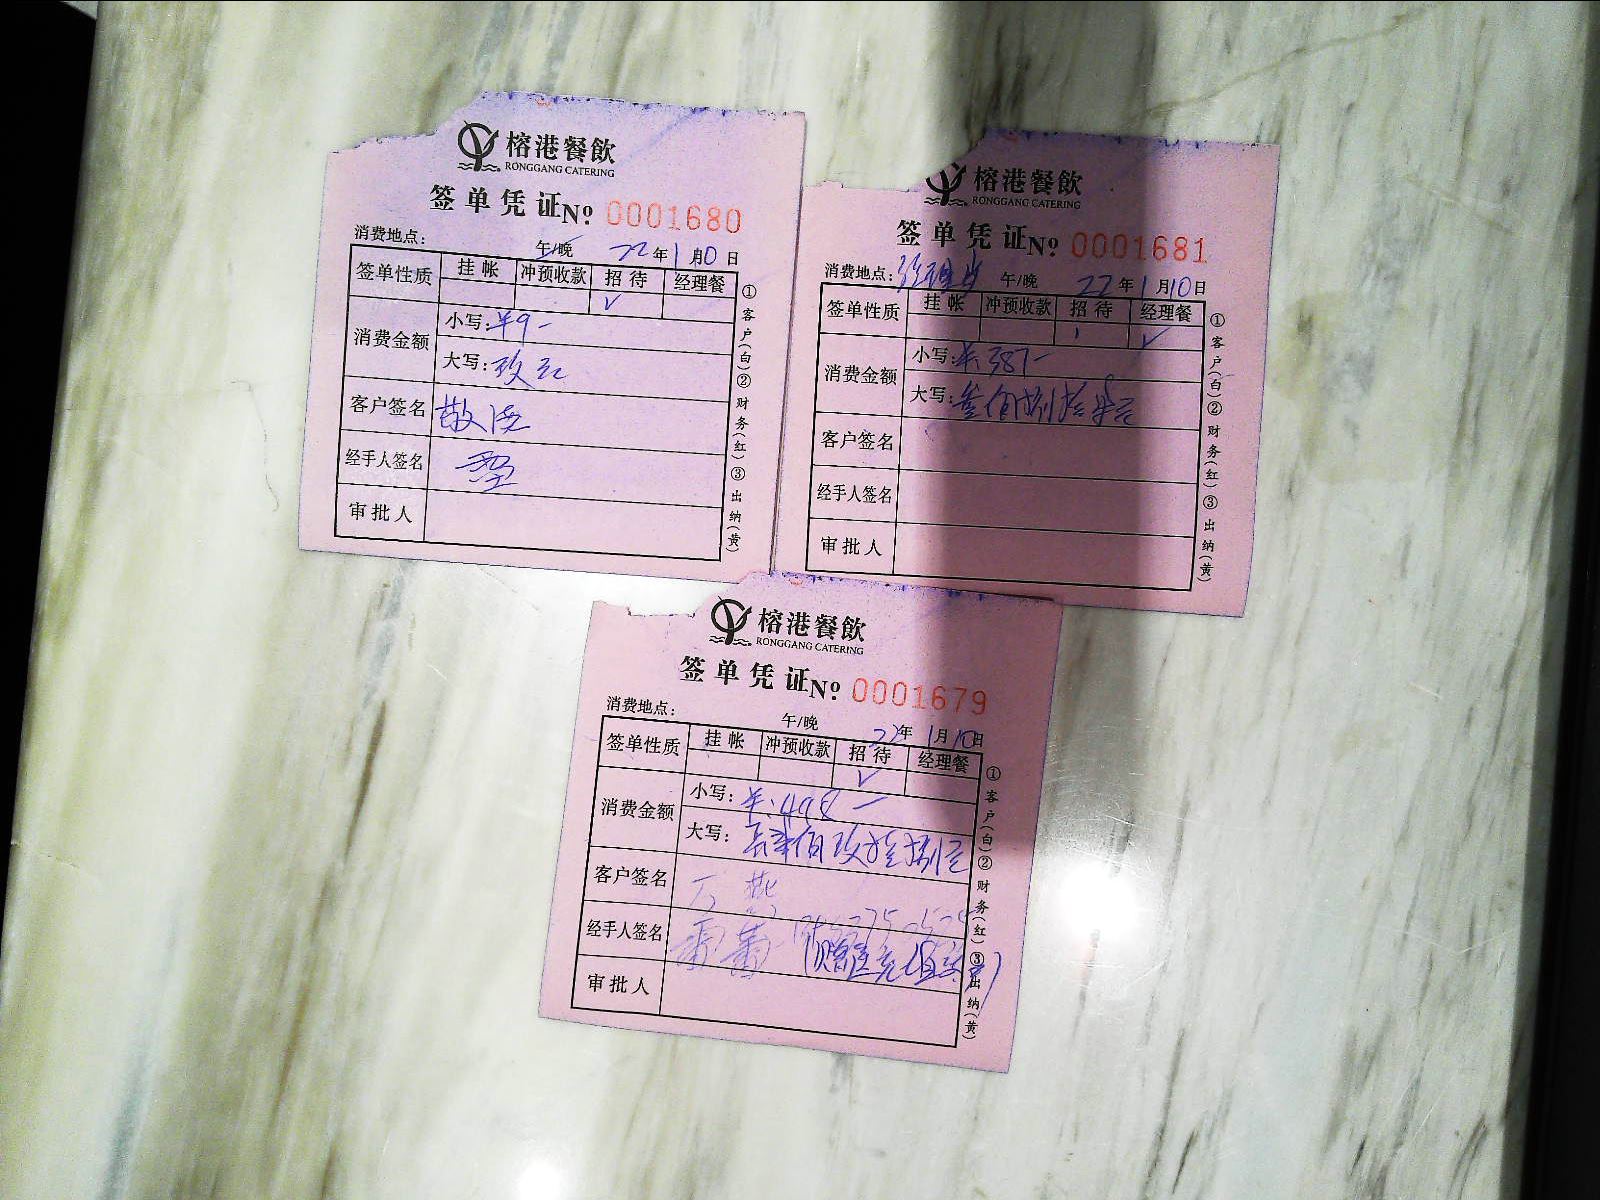 榕港餐飲
RONGGANG CATERING
签单凭证 Nº 0001680
消费地点: 午/晚 22年1月10日
签单性质 挂帐 冲预收款 招待 经理餐
✓
消费金额 小写: ¥9-
大写: 玖元
客户签名
经手人签名
审批人
①客户(白)②财务(红)③出纳(黄)
榕港餐飲
RONGGANG CATERING
签单凭证 Nº 0001681
消费地点: 午/晚 22年1月10日
签单性质 挂帐 冲预收款 招待 经理餐
✓
消费金额 小写: ¥387-
大写: 叁佰捌拾柒元
客户签名
经手人签名
审批人
①客户(白)②财务(红)③出纳(黄)
榕港餐飲
RONGGANG CATERING
签单凭证 Nº 0001679
消费地点: 午/晚 22年1月10日
签单性质 挂帐 冲预收款 招待 经理餐
✓
消费金额 小写: ¥:498-
大写: 肆佰玖拾捌元
客户签名
经手人签名
审批人
①客户(白)②财务(红)③出纳(黄)